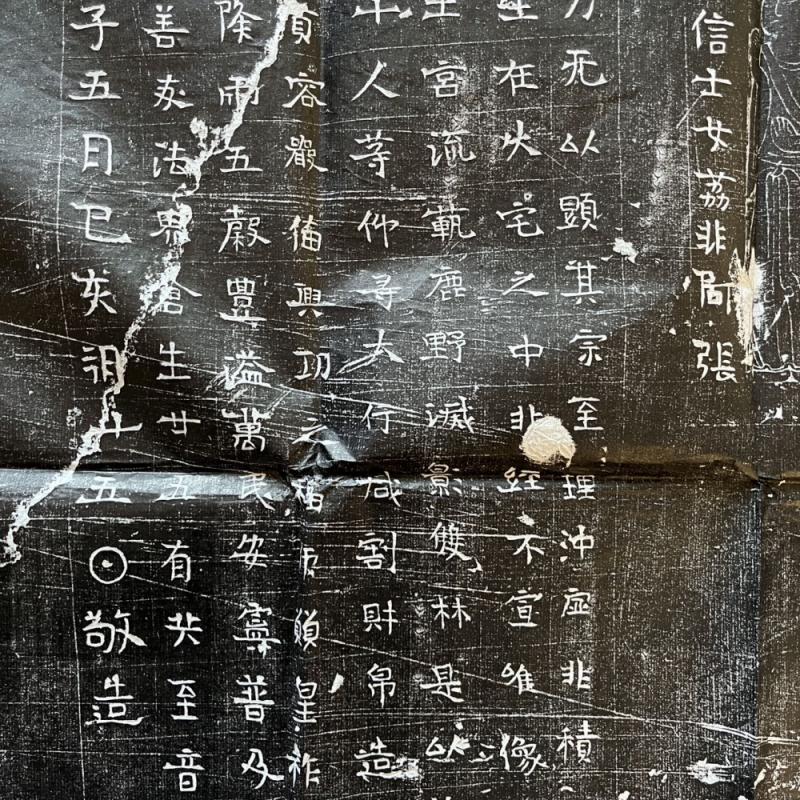 信士女荔非周張
方无以顯其宗至理沖虛非積
生在火宅之中非經不宣唯像
王宮流範鹿野滅影雙林是以
年人等仰尋大行咸割財帛造
真容嚴備興功之福所願皇祚
降雨五穀豊溢萬民安寧普及
善友法界倉生廿五有共至音
子五日巳亥朔廿五⊙敬造